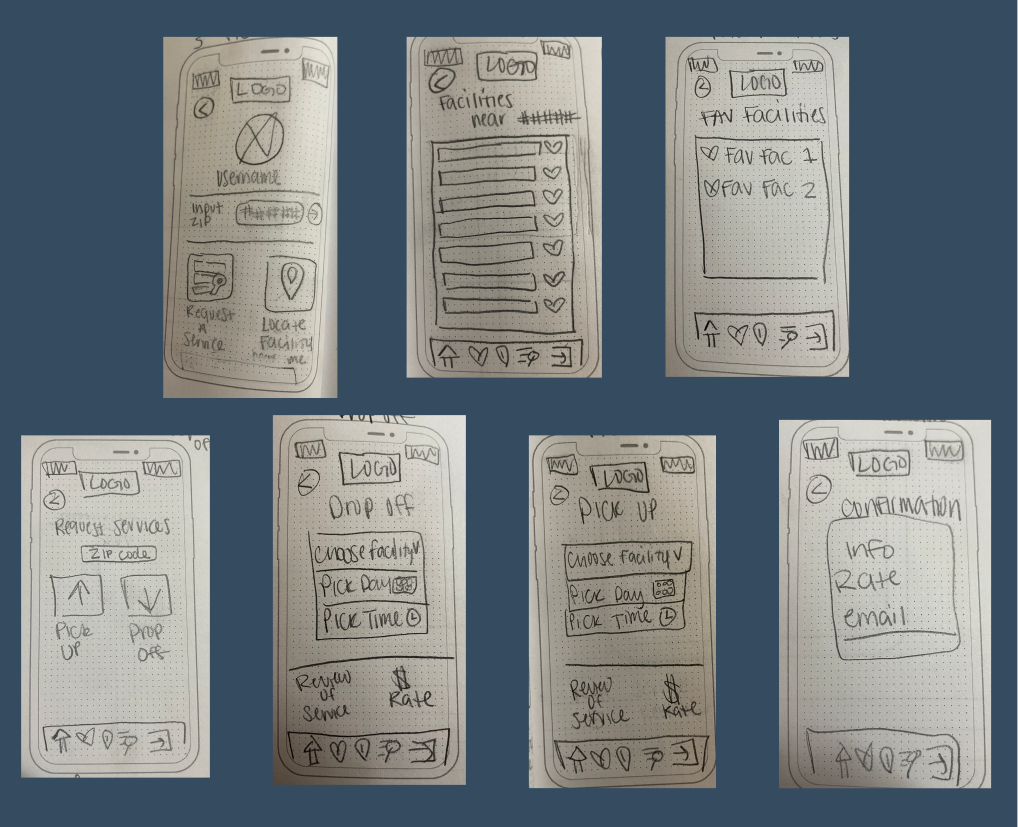 LOGO
Username
Input
ZIP
######
Request
A
Service
Locate
Facility
near me
LOGO
Facilities
near ######
LOGO
FAV Facilities
Fav Fac 1
Fav Fac 2
LOGO
Request Services
ZIP code
Pick
UP
Drop
Off
LOGO
Drop off
Choose facility
Pick Day
Pick Time
Review
of
Service
$
Rate
LOGO
Pick UP
Choose Facility
Pick Day
Pick Time
Review
of
Service
$
Rate
LOGO
Confirmation
Info
Rate
email